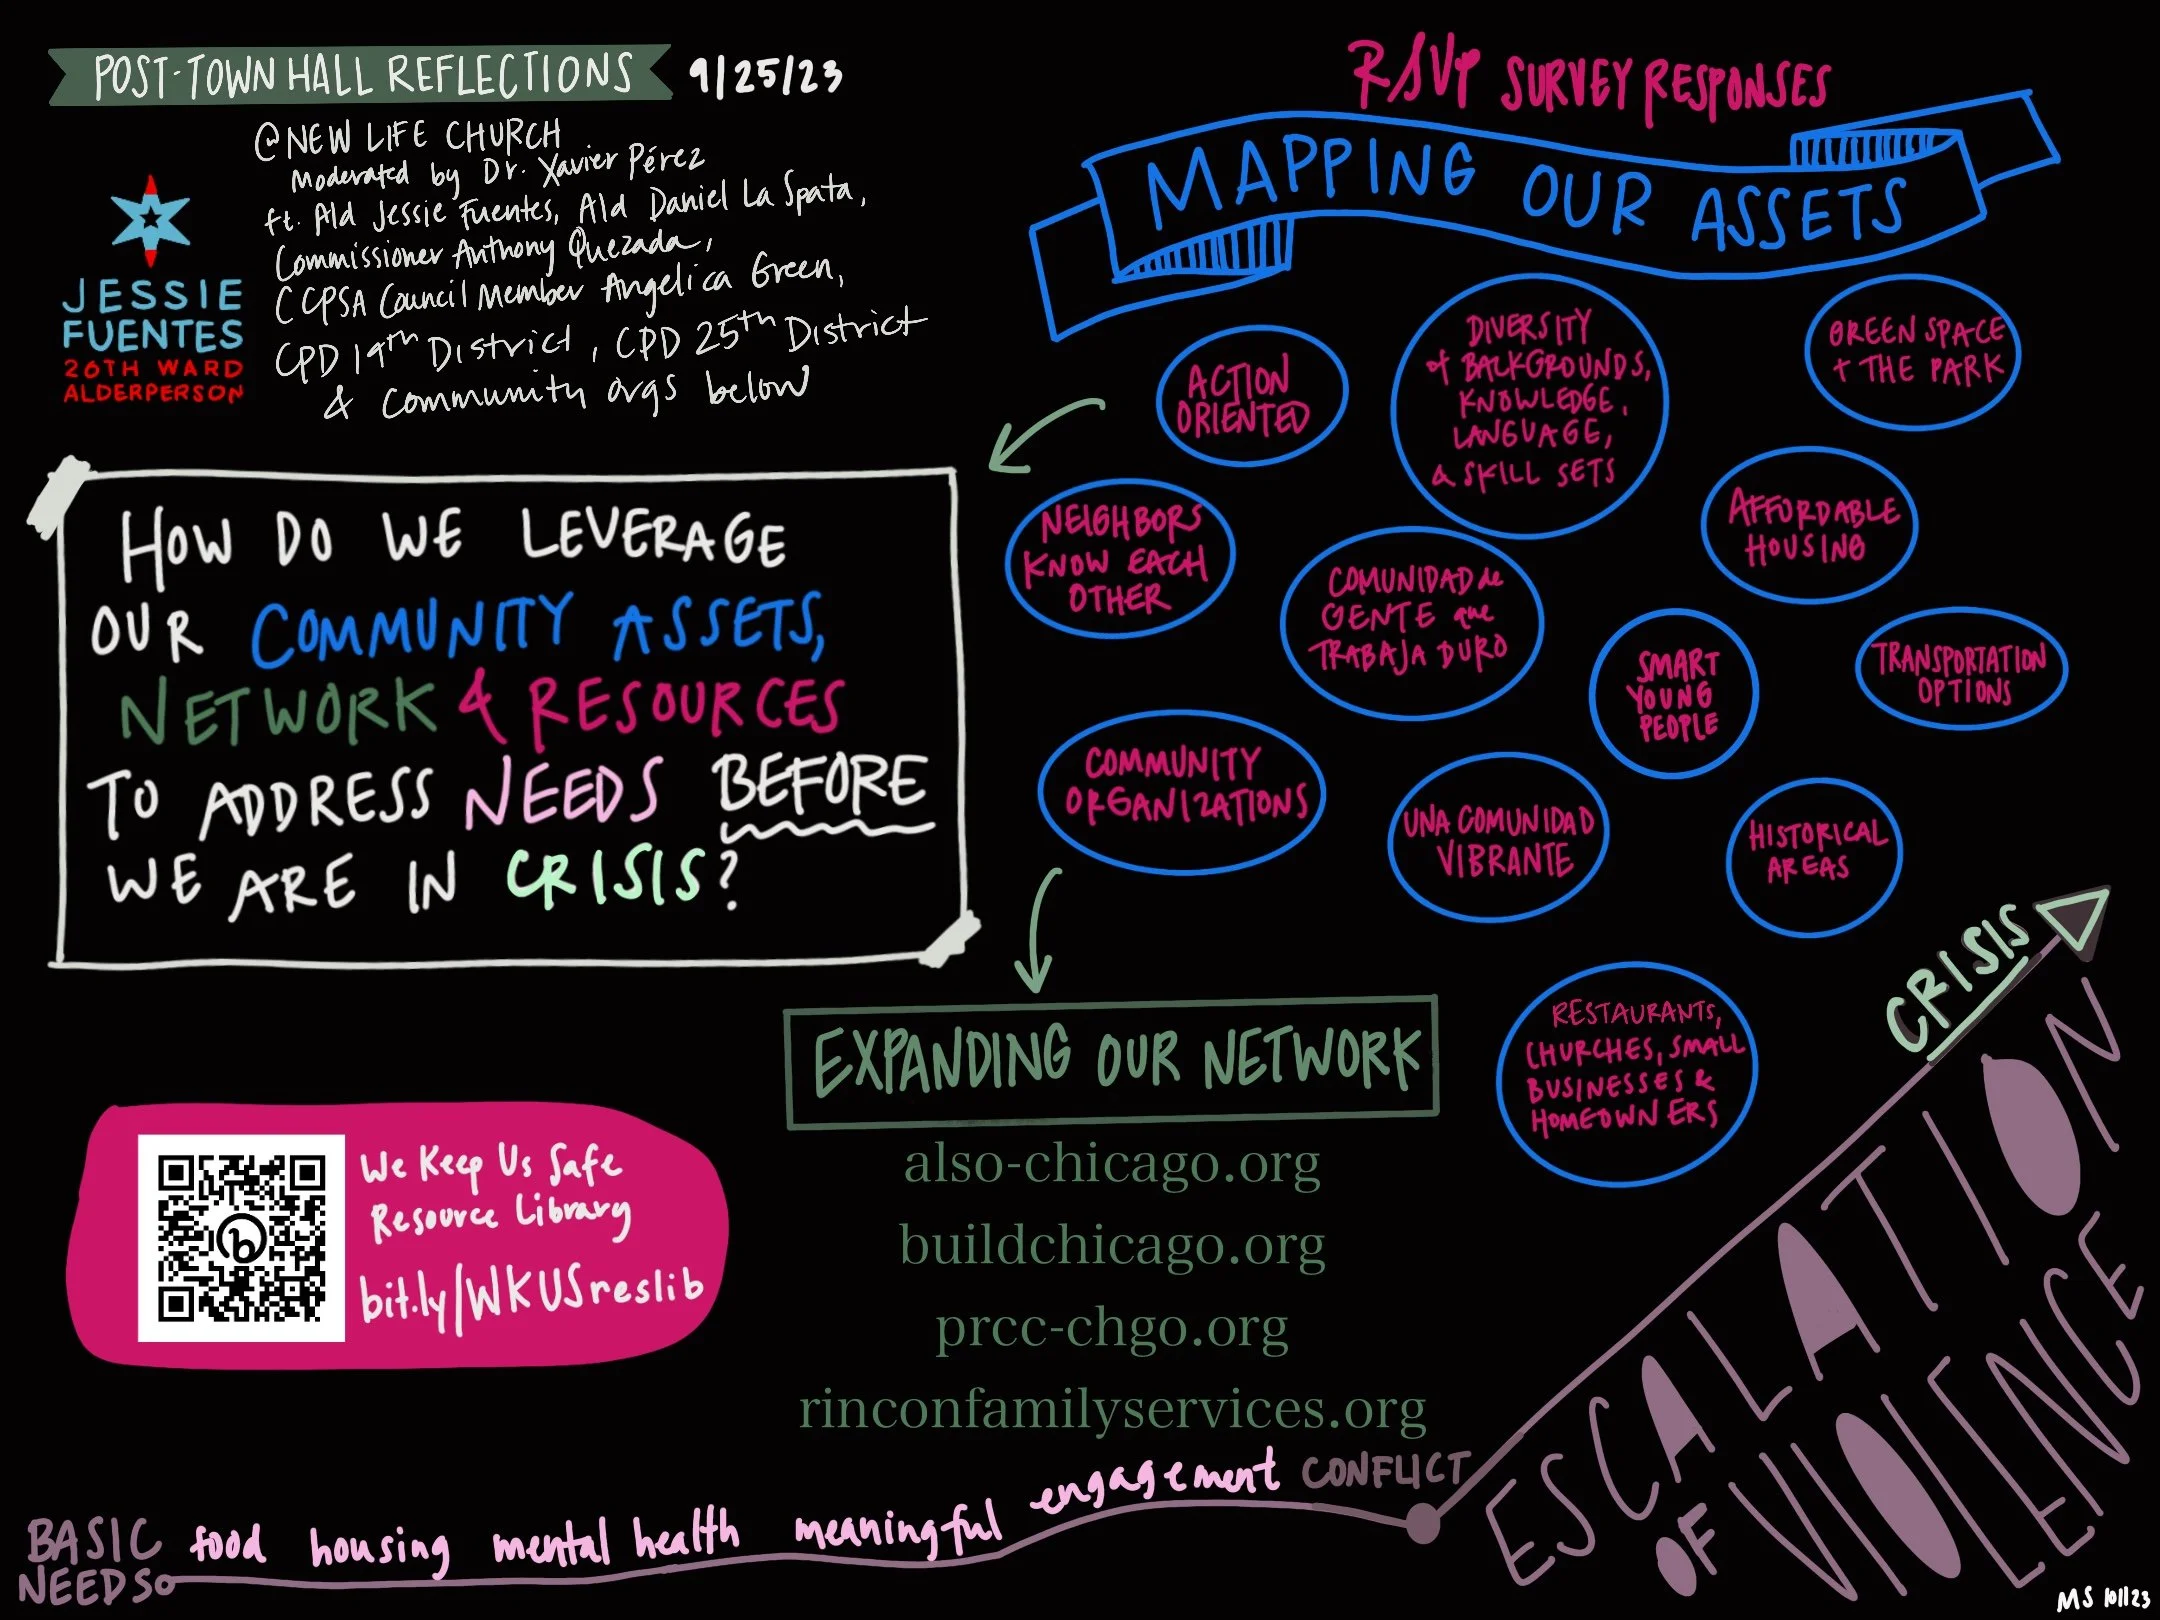 POST-TOWN HALL REFLECTIONS 9/25/23
@NEW LIFE CHURCH
Moderated by Dr. Xavier Pérez
ft. Ald Jessie Fuentes, Ald Daniel La Spata,
Commissioner Anthony Quezada,
CCPSA Council Member Angelica Green,
CPD 14th District, CPD 25th District
& Community orgs below
JESSIE
FUENTES
26TH WARD
ALDERPERSON
HOW DO WE LEVERAGE
OUR COMMUNITY ASSETS,
NETWORK & RESOURCES
TO ADDRESS NEEDS BEFORE
WE ARE IN CRISIS?
RSVP SURVEY RESPONSES
MAPPING OUR ASSETS
ACTION
ORIENTED
DIVERSITY
of BACKGROUNDS,
KNOWLEDGE,
LANGUAGE,
& SKILL SETS
GREEN SPACE
+ THE PARK
NEIGHBORS
KNOW EACH
OTHER
COMUNIDAD de
GENTE que
TRABAJA DURO
AFFORDABLE
HOUSING
SMART
YOUNG
PEOPLE
TRANSPORTATION
OPTIONS
COMMUNITY
ORGANIZATIONS
UNA COMUNIDAD
VIBRANTE
HISTORICAL
AREAS
RESTAURANTS,
CHURCHES, SMALL
BUSINESSES &
HOMEOWNERS
EXPANDING OUR NETWORK
also-chicago.org
buildchicago.org
prcc-chgo.org
rinconfamilyservices.org
We Keep Us Safe
Resource Library
bit.ly/WKUSreslib
b
BASIC
NEEDS
food housing mental health meaningful engagement CONFLICT
CRISIS
ESCALATION
OF VIOLENCE
MS 10/1/23